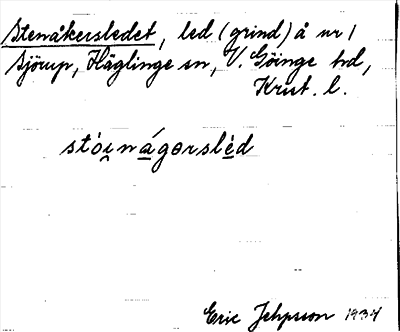 Stenåkersledet, led (grind) å nr 1
Sjörup, Häglinge sn, V. Göinge hd,
Krist. l.
stói̯nágərslèd
Eric Jeppsson 1934